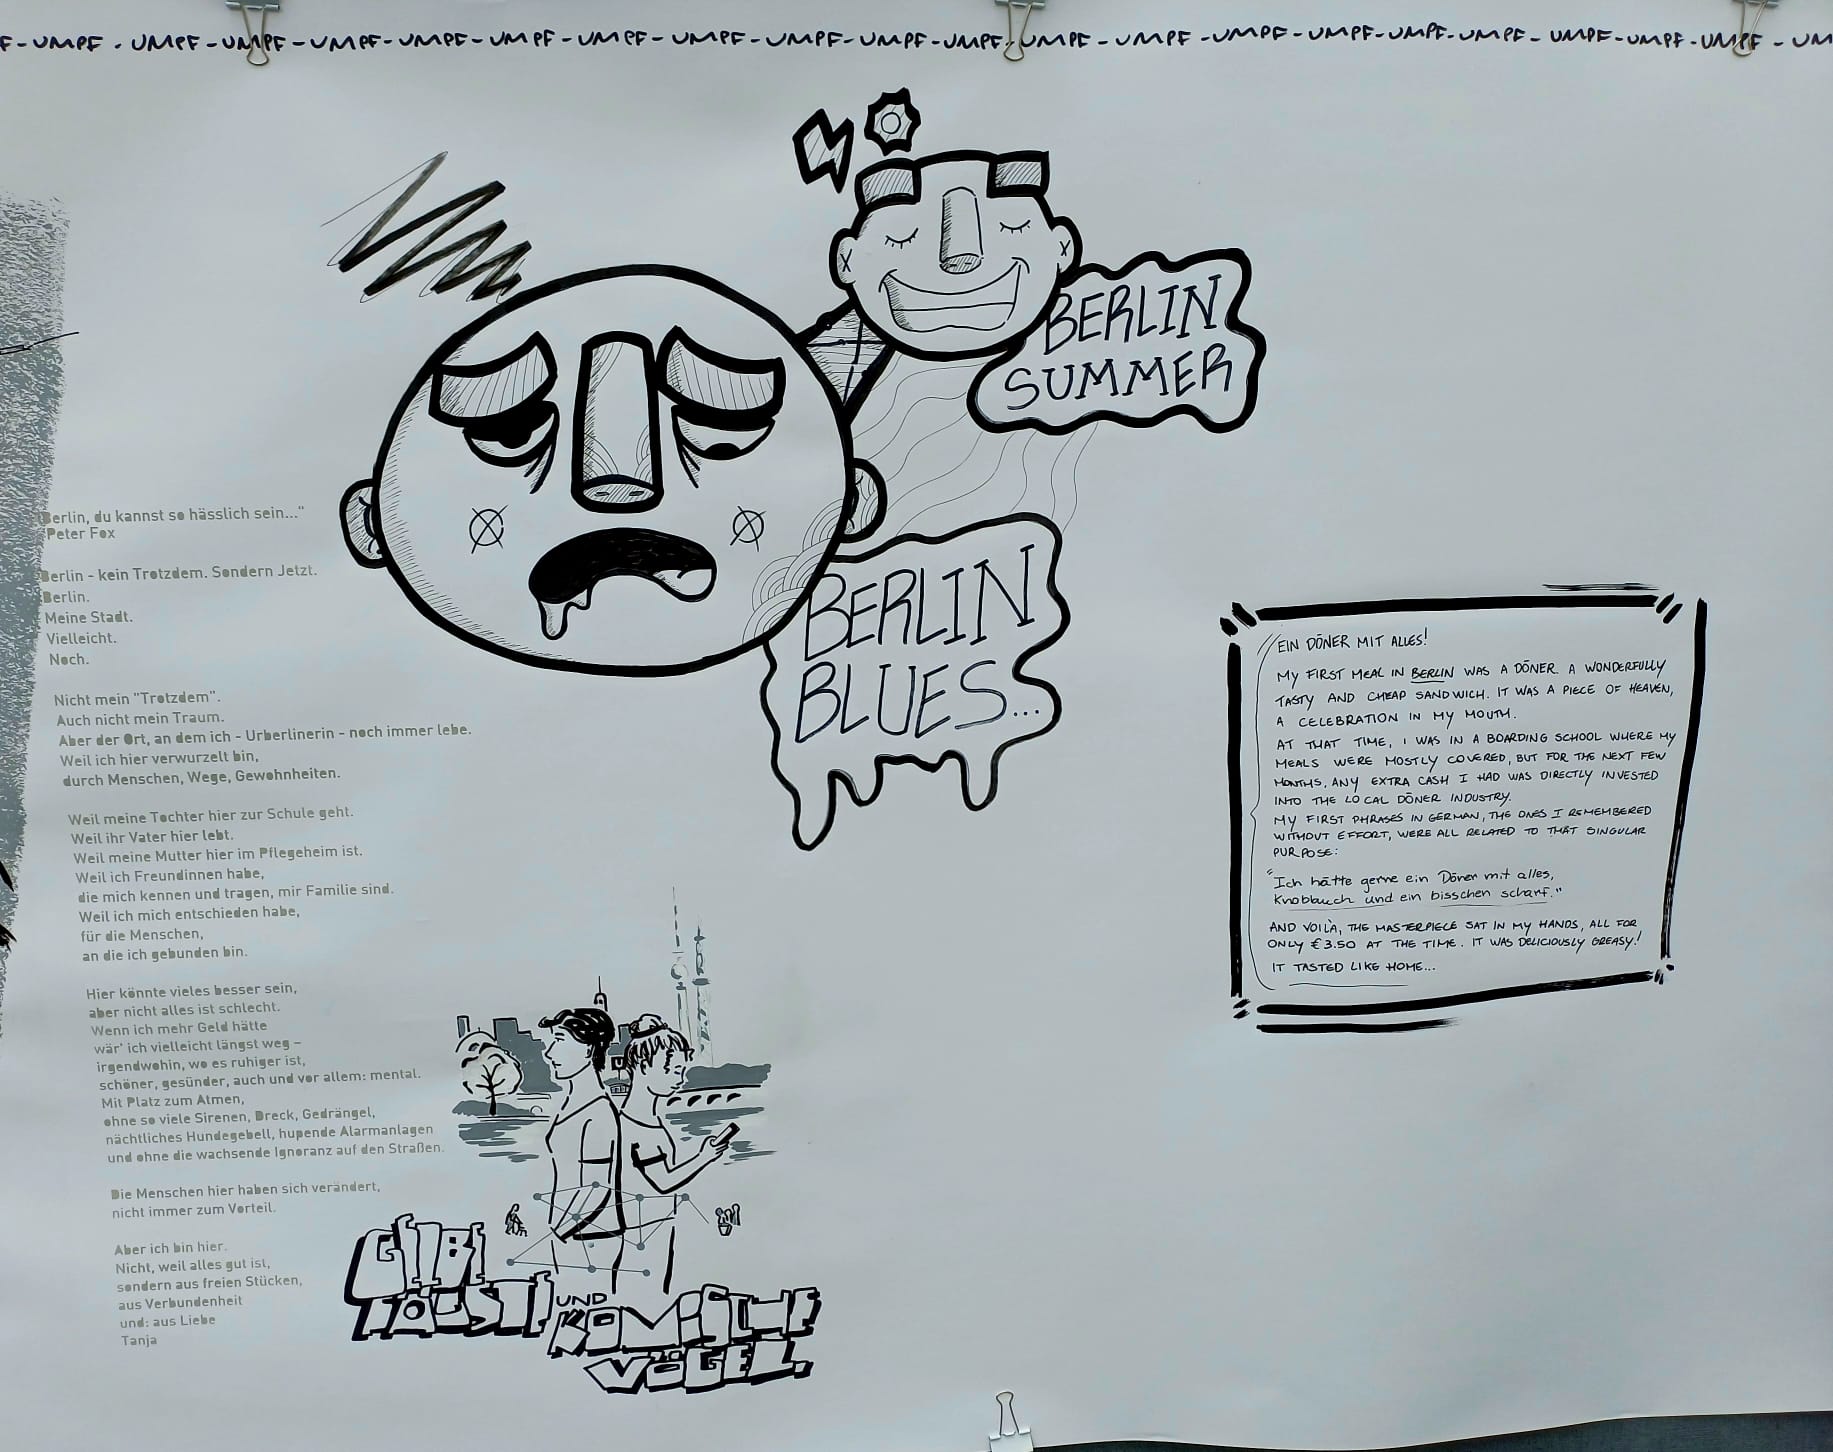 F - UMPF - UMPF - UMPF - UMPF - UMPF - UMPF - UMPF - UMPF - UMPF - UMPF - UMPF - UMPF - UMPF - UMPF - UMPF - UMPF - UMPF - UMPF - UMPF - UM
BERLIN
SUMMER
BERLIN
BLUES...
"Berlin, du kannst so hässlich sein..."
Peter Fox
Berlin - kein Trotzdem. Sondern Jetzt.
Berlin.
Meine Stadt.
Vielleicht.
Noch.
Nicht mein "Trotzdem".
Auch nicht mein Traum.
Aber der Ort, an dem ich - Urberlinerin - noch immer lebe.
Weil ich hier verwurzelt bin,
durch Menschen, Wege, Gewohnheiten.
Weil meine Tochter hier zur Schule geht.
Weil ihr Vater hier lebt.
Weil meine Mutter hier im Pflegeheim ist.
Weil ich Freundinnen habe,
die mich kennen und tragen, mir Familie sind.
Weil ich mich entschieden habe,
für die Menschen,
an die ich gebunden bin.
Hier könnte vieles besser sein,
aber nicht alles ist schlecht.
Wenn ich mehr Geld hätte
wär' ich vielleicht längst weg –
irgendwohin, wo es ruhiger ist,
schöner, gesünder, auch und vor allem: mental.
Mit Platz zum Atmen,
ohne so viele Sirenen, Dreck, Gedrängel,
nächtliches Hundegebell, hupende Alarmanlagen
und ohne die wachsende Ignoranz auf den Straßen.
Die Menschen hier haben sich verändert,
nicht immer zum Vorteil.
Aber ich bin hier.
Nicht, weil alles gut ist,
sondern aus freien Stücken,
aus Verbundenheit
und: aus Liebe
Tanja
UND
KOMISCHE
VÖGEL.
EIN DÖNER MIT ALLES!
MY FIRST MEAL IN BERLIN WAS A DÖNER. A WONDERFULLY
TASTY AND CHEAP SANDWICH. IT WAS A PIECE OF HEAVEN,
A CELEBRATION IN MY MOUTH.
AT THAT TIME, I WAS IN A BOARDING SCHOOL WHERE MY
MEALS WERE MOSTLY COVERED, BUT FOR THE NEXT FEW
MONTHS, ANY EXTRA CASH I HAD WAS DIRECTLY INVESTED
INTO THE LOCAL DÖNER INDUSTRY.
MY FIRST PHRASES IN GERMAN, THE ONES I REMEMBERED
WITHOUT EFFORT, WERE ALL RELATED TO THAT SINGULAR
PURPOSE:
"Ich hätte gerne ein Döner mit alles,
Knoblauch und ein bisschen scharf."
AND VOILÀ, THE MASTERPIECE SAT IN MY HANDS, ALL FOR
ONLY €3.50 AT THE TIME. IT WAS DELICIOUSLY GREASY!
IT TASTED LIKE HOME...